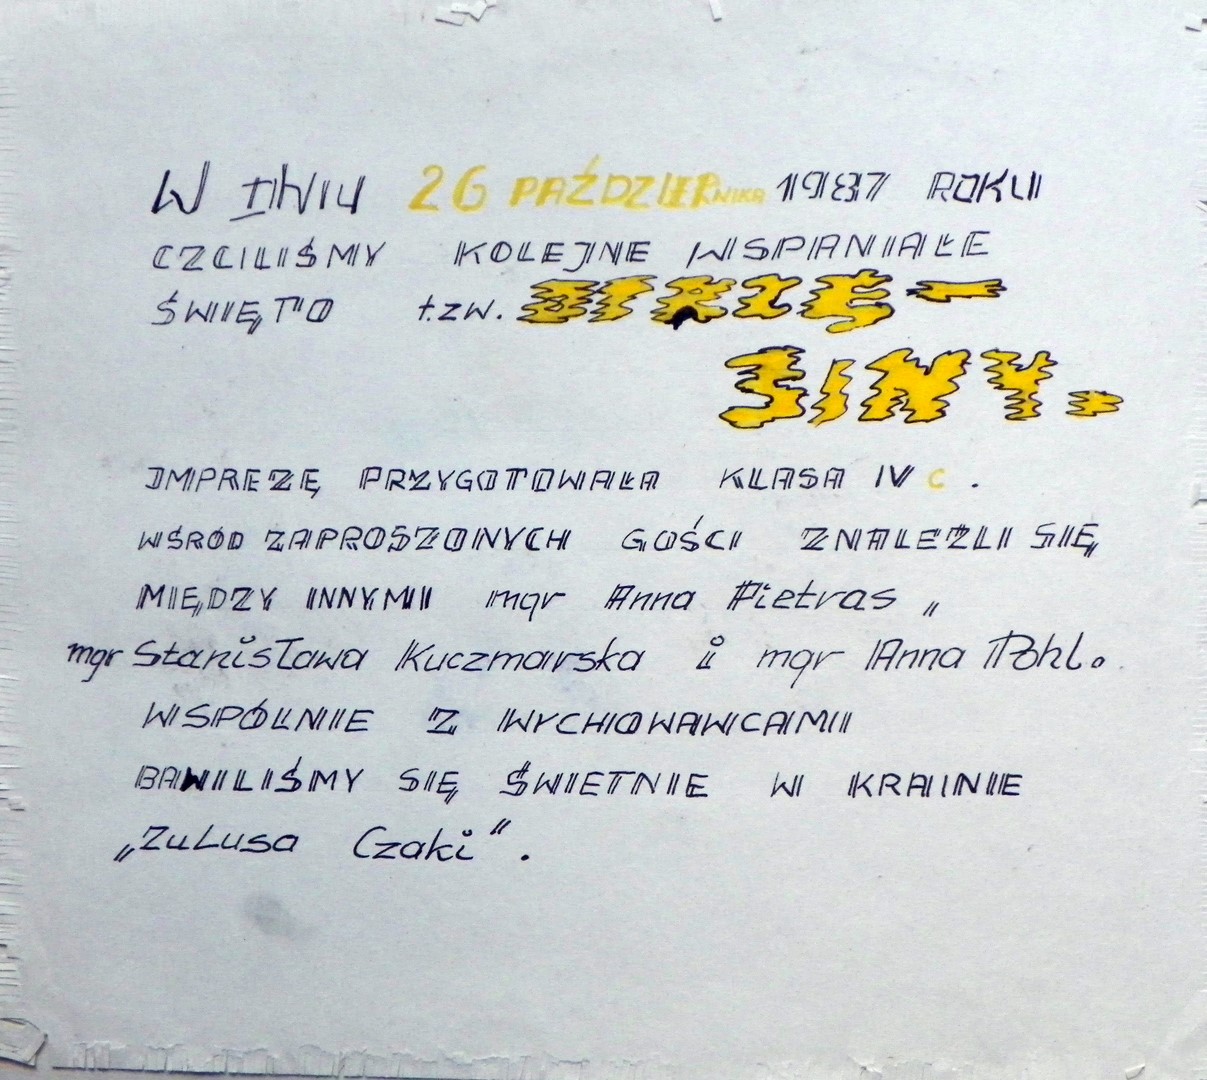 W DNIU 26 PAŹDZIERNIKA 1987 ROKU
CZCILIŚMY KOLEJNE WSPANIAŁE
ŚWIĘTO t.zw. OTRZĘ-
SINY.
IMPREZĘ PRZYGOTOWAŁA KLASA IV C .
WŚRÓD ZAPROSZONYCH GOŚCI ZNALEŹLI SIĘ
MIĘDZY INNYMI mgr Anna Pietras „
mgr Stanisława Kuczmarska i mgr Anna Pohl.
WSPÓLNIE Z WYCHOWAWCAMI
BAWILIŚMY SIĘ ŚWIETNIE W KRAINIE
„Zulusa Czaki" .